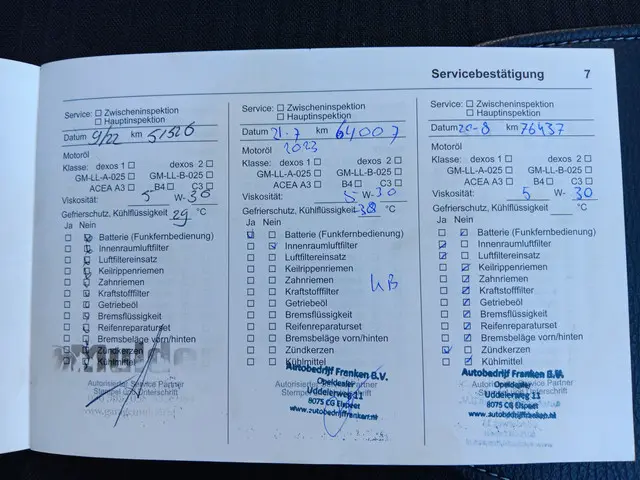 Servicebestätigung 7
Service: Zwischeninspektion
Hauptinspektion
Datum 9/22 km 51526
Motoröl
Klasse: dexos 1 dexos 2
GM-LL-A-025 GM-LL-B-025
ACEA A3 B4 C3
Viskosität: 5 W- 30
Gefrierschutz, Kühlflüssigkeit 29 °C
Ja Nein
Batterie (Funkfernbedienung)
Innenraumluftfilter
Luftfiltereinsatz
Keilrippenriemen
Zahnriemen
Kraftstofffilter
Getriebeöl
Bremsflüssigkeit
Reifenreparaturset
Bremsbeläge vorn/hinten
Zündkerzen
Kühlmittel
Autorisierter Service Partner
Stempel und Unterschrift
Service: Zwischeninspektion
Hauptinspektion
Datum 21-7 km 64007
Motoröl 2023
Klasse: dexos 1 dexos 2
GM-LL-A-025 GM-LL-B-025
ACEA A3 B4 C3
Viskosität: 5 W- 30
Gefrierschutz, Kühlflüssigkeit °C
Ja Nein
Batterie (Funkfernbedienung)
Innenraumluftfilter
Luftfiltereinsatz
Keilrippenriemen
Zahnriemen
Kraftstofffilter
Getriebeöl
Bremsflüssigkeit
Reifenreparaturset
Bremsbeläge vorn/hinten
Zündkerzen
Kühlmittel
Autobedrijf Franken B.V.
Opeldealer
Uddelerweg 11
8075 CG Elspeet
www.autobedrijffranken.nl
Service: Zwischeninspektion
Hauptinspektion
Datum 20-8 km 76437
Motoröl
Klasse: dexos 1 dexos 2
GM-LL-A-025 GM-LL-B-025
ACEA A3 B4 C3
Viskosität: 5 W- 30
Gefrierschutz, Kühlflüssigkeit °C
Ja Nein
Batterie (Funkfernbedienung)
Innenraumluftfilter
Luftfiltereinsatz
Keilrippenriemen
Zahnriemen
Kraftstofffilter
Getriebeöl
Bremsflüssigkeit
Reifenreparaturset
Bremsbeläge vorn/hinten
Zündkerzen
Kühlmittel
Autobedrijf Franken B.V.
Opeldealer
Uddelerweg 11
8075 CG Elspeet
www.autobedrijffranken.nl